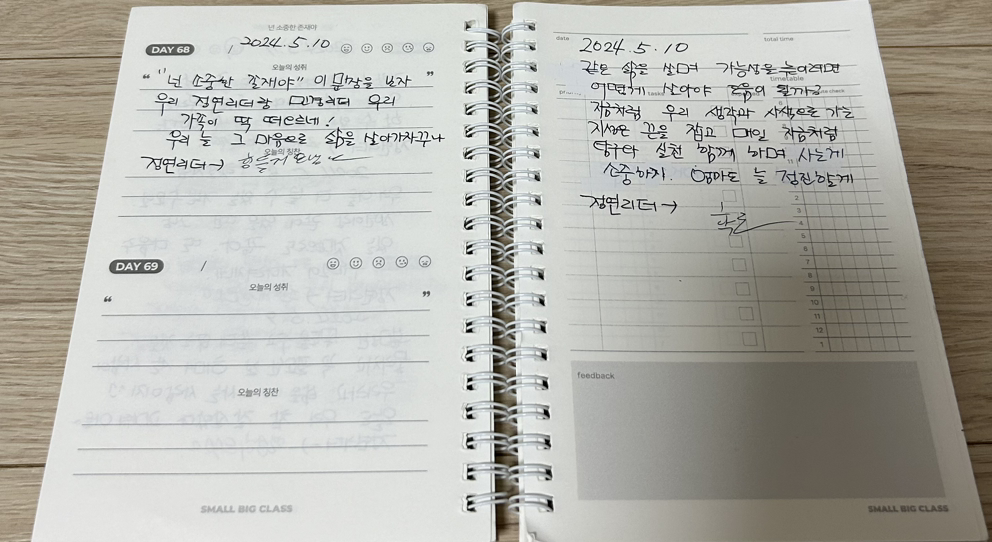 넌 소중한 존재야
DAY 68
/ 2024.5.10
오늘의 성취
“ "넌 소중한 존재야" 이 문장을 보자 ”
우리 정연리더랑 민경리더 우리
가족이 딱 떠오르네!
우리 늘 그 마음으로 삶을 살아가자꾸나
오늘의 칭찬
정연리더→
DAY 69
/
오늘의 성취
“ ”
오늘의 칭찬
SMALL BIG CLASS
date
total time
2024.5.10
같은 삶을 살며 가능성을 높이려면
timetable
어떻게 살아야 도움이 될까?
task
check
지금처럼 우리 생각과 사색으로 가는
끈을 잡고 매일 지금처럼
실천 함께 하며 사는게
소중하지. 엄마도 늘 정진할게
정연리더→
2
3
4
5
6
7
8
9
10
11
12
1
feedback
SMALL BIG CLASS